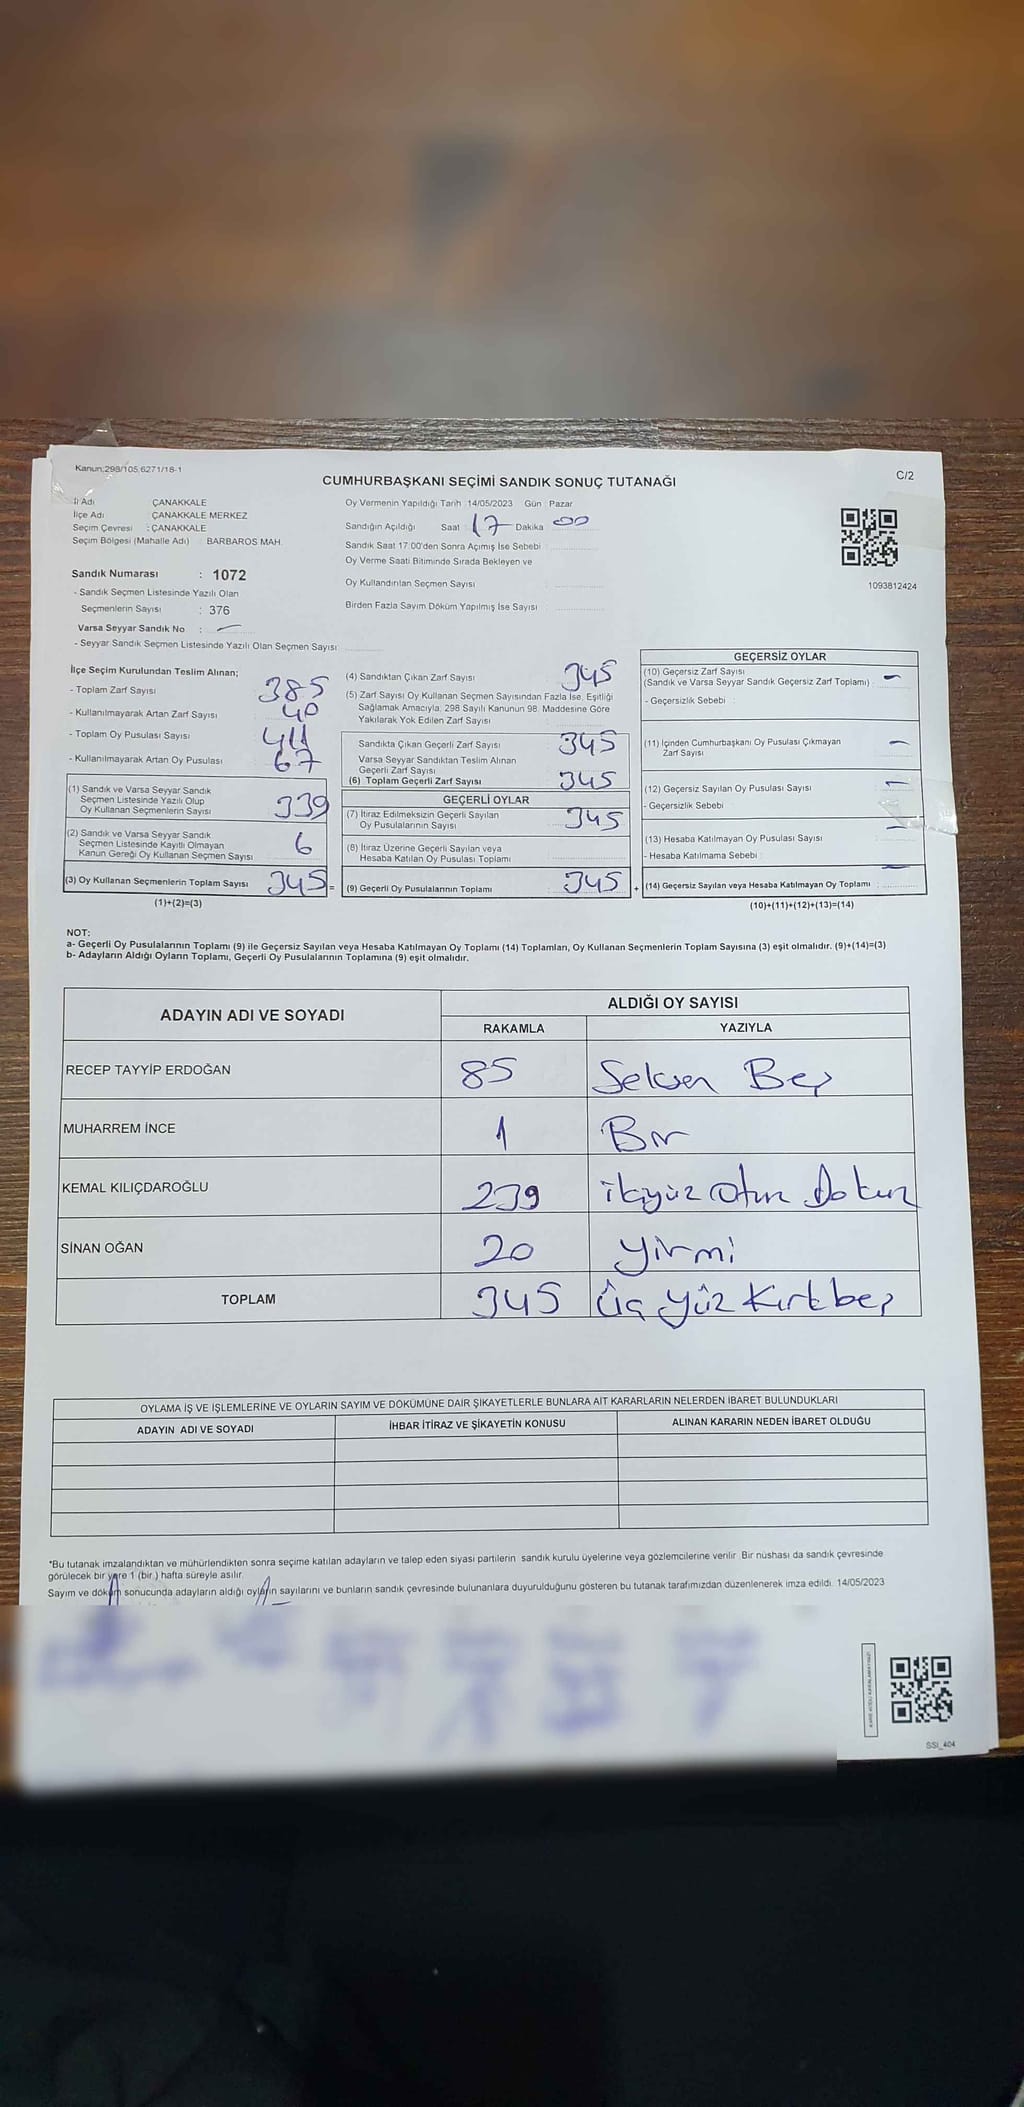 Kanun:298/105,6271/18-1
CUMHURBAŞKANI SEÇİMİ SANDIK SONUÇ TUTANAĞI
C/2
İl Adı : ÇANAKKALE
İlçe Adı : ÇANAKKALE MERKEZ
Seçim Çevresi : ÇANAKKALE
Seçim Bölgesi (Mahalle Adı) : BARBAROS MAH.
Sandık Numarası : 1072
- Sandık Seçmen Listesinde Yazılı Olan
Seçmenlerin Sayısı : 376
Varsa Seyyar Sandık No : -
- Seyyar Sandık Seçmen Listesinde Yazılı Olan Seçmen Sayısı
Oy Vermenin Yapıldığı Tarih : 14/05/2023 Gün : Pazar
Sandığın Açıldığı Saat : 17 Dakika 00
Sandık Saat 17:00'den Sonra Açılmış İse Sebebi :
Oy Verme Saati Bitiminde Sırada Bekleyen ve
Oy Kullandırılan Seçmen Sayısı :
Birden Fazla Sayım Döküm Yapılmış İse Sayısı :
1093812424
İlçe Seçim Kurulundan Teslim Alınan;
- Toplam Zarf Sayısı 385
- Kullanılmayarak Artan Zarf Sayısı 40
- Toplam Oy Pusulası Sayısı
- Kullanılmayarak Artan Oy Pusulası 67
(1) Sandık ve Varsa Seyyar Sandık
Seçmen Listesinde Yazılı Olup
Oy Kullanan Seçmenlerin Sayısı 339
(2) Sandık ve Varsa Seyyar Sandık
Seçmen Listesinde Kayıtlı Olmayan
Kanun Gereği Oy Kullanan Seçmen Sayısı 6
(3) Oy Kullanan Seçmenlerin Toplam Sayısı 345 =
(1)+(2)=(3)
(4) Sandıktan Çıkan Zarf Sayısı 345
(5) Zarf Sayısı Oy Kullanan Seçmen Sayısından Fazla İse, Eşitliği
Sağlamak Amacıyla, 298 Sayılı Kanunun 98. Maddesine Göre
Yakılarak Yok Edilen Zarf Sayısı
Sandıkta Çıkan Geçerli Zarf Sayısı 345
Varsa Seyyar Sandıktan Teslim Alınan
Geçerli Zarf Sayısı
(6) Toplam Geçerli Zarf Sayısı 345
GEÇERLİ OYLAR
(7) İtiraz Edilmeksizin Geçerli Sayılan
Oy Pusulalarının Sayısı 345
(8) İtiraz Üzerine Geçerli Sayılan veya
Hesaba Katılan Oy Pusulası Toplamı
(9) Geçerli Oy Pusulalarının Toplamı : 345 +
GEÇERSİZ OYLAR
(10) Geçersiz Zarf Sayısı
(Sandık ve Varsa Seyyar Sandık Geçersiz Zarf Toplamı) : -
- Geçersizlik Sebebi :
(11) İçinden Cumhurbaşkanı Oy Pusulası Çıkmayan
Zarf Sayısı -
(12) Geçersiz Sayılan Oy Pusulası Sayısı -
- Geçersizlik Sebebi :
(13) Hesaba Katılmayan Oy Pusulası Sayısı -
- Hesaba Katılmama Sebebi :
(14) Geçersiz Sayılan veya Hesaba Katılmayan Oy Toplamı : -
(10)+(11)+(12)+(13)=(14)
NOT:
a- Geçerli Oy Pusulalarının Toplamı (9) ile Geçersiz Sayılan veya Hesaba Katılmayan Oy Toplamı (14) Toplamları, Oy Kullanan Seçmenlerin Toplam Sayısına (3) eşit olmalıdır. (9)+(14)=(3)
b- Adayların Aldığı Oyların Toplamı, Geçerli Oy Pusulalarının Toplamına (9) eşit olmalıdır.
ADAYIN ADI VE SOYADI
ALDIĞI OY SAYISI
RAKAMLA YAZIYLA
RECEP TAYYİP ERDOĞAN 85 Seksen Beş
MUHARREM İNCE 1 Bir
KEMAL KILIÇDAROĞLU 239 ikiyüz Otuz Dokuz
SİNAN OĞAN 20 Yirmi
TOPLAM 345 Üç Yüz Kırk beş
OYLAMA İŞ VE İŞLEMLERİNE VE OYLARIN SAYIM VE DÖKÜMÜNE DAİR ŞİKAYETLERLE BUNLARA AİT KARARLARIN NELERDEN İBARET BULUNDUKLARI
ADAYIN ADI VE SOYADI İHBAR İTİRAZ VE ŞİKAYETİN KONUSU ALINAN KARARIN NEDEN İBARET OLDUĞU
*Bu tutanak imzalandıktan ve mühürlendikten sonra seçime katılan adayların ve talep eden siyasi partilerin sandık kurulu üyelerine veya gözlemcilerine verilir. Bir nüshası da sandık çevresinde
görülecek bir yere 1 (bir) hafta süreyle asılır.
Sayım ve döküm sonucunda adayların aldığı oyların sayılarını ve bunların sandık çevresinde bulunanlara duyurulduğunu gösteren bu tutanak tarafımızdan düzenlenerek imza edildi. 14/05/2023
SSI_404